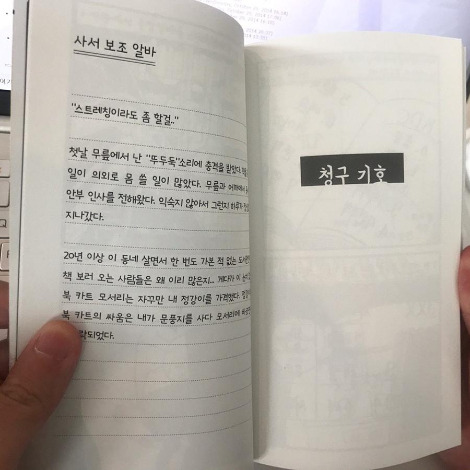 사서 보조 알바
"스트레칭이라도 좀 할걸.."
첫날 무릎에서 난 "뚜두둑"소리에 충격을 받았다.
일이 의외로 몸 쓸 일이 많았다. 무릎과
안부 인사를 전해왔다. 익숙지 않아서 그런지 하루가
지나갔다.
20년 이상 이 동네 살면서 한 번도 가본 적 없는
책 보러 오는 사람들은 왜 이리 많은지... 게다가 이
북 카트 모서리는 자꾸만 내 정강이를 가격했다.
북 카트의 싸움은 내가 문풍지를 사다 모서리에
되었다.
청구 기호